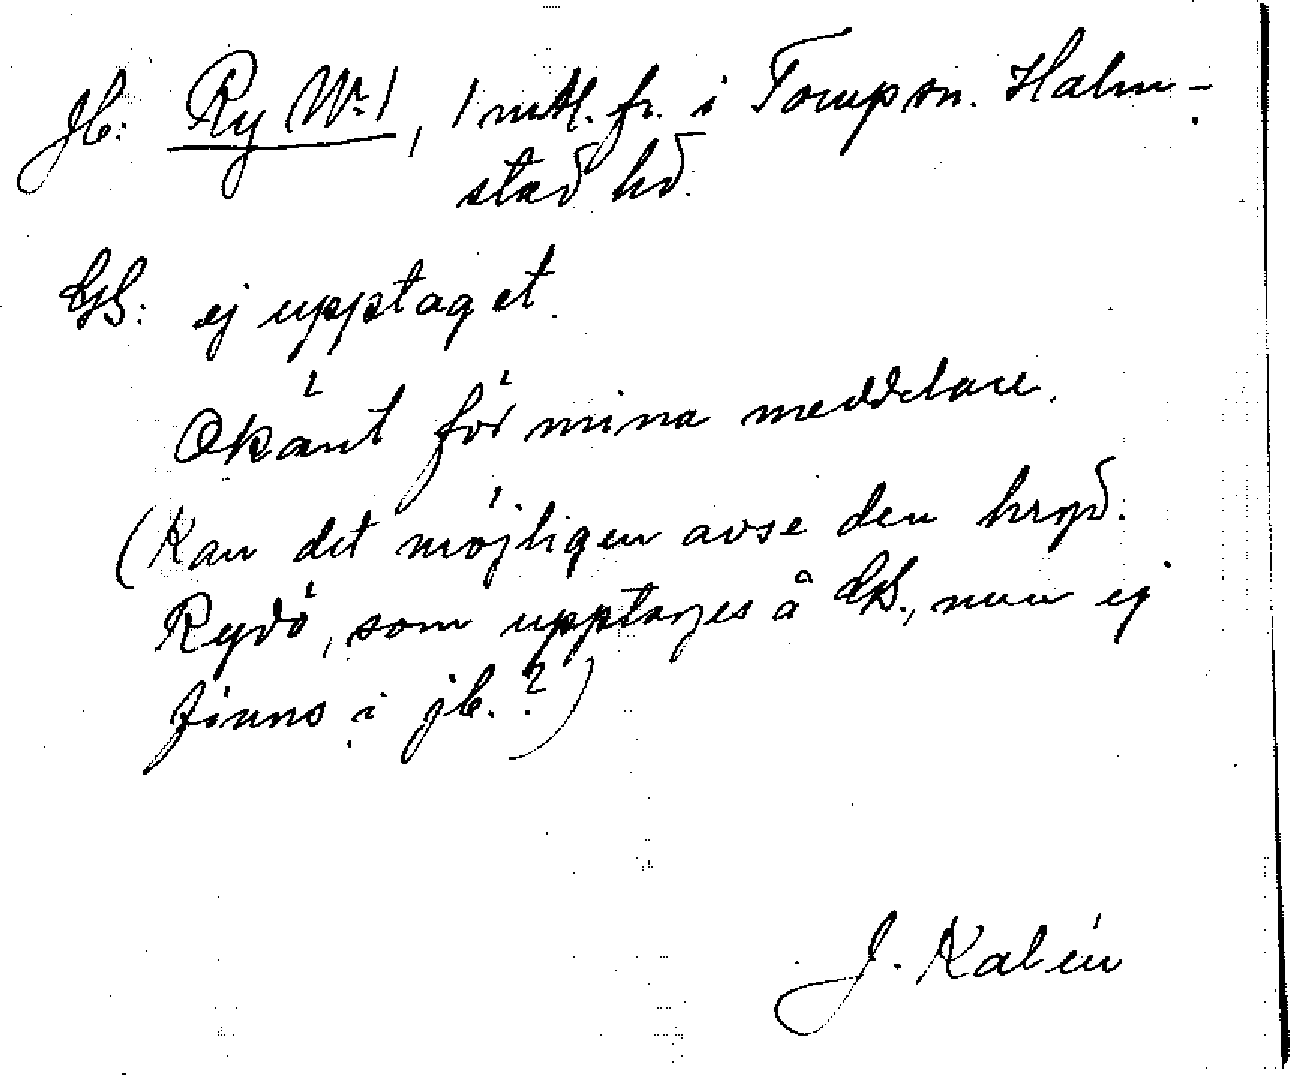 Jb: Ry Nr 1, 1 mtl. fr. i Torup sn. Halm-
stad hd.
GS: ej upptaget.
Okänt för mina meddelare.
(Kan det möjligen avse den hrgd.
Rydö, som upptages å GS., men ej
finns i jb.?)
J. Kalén